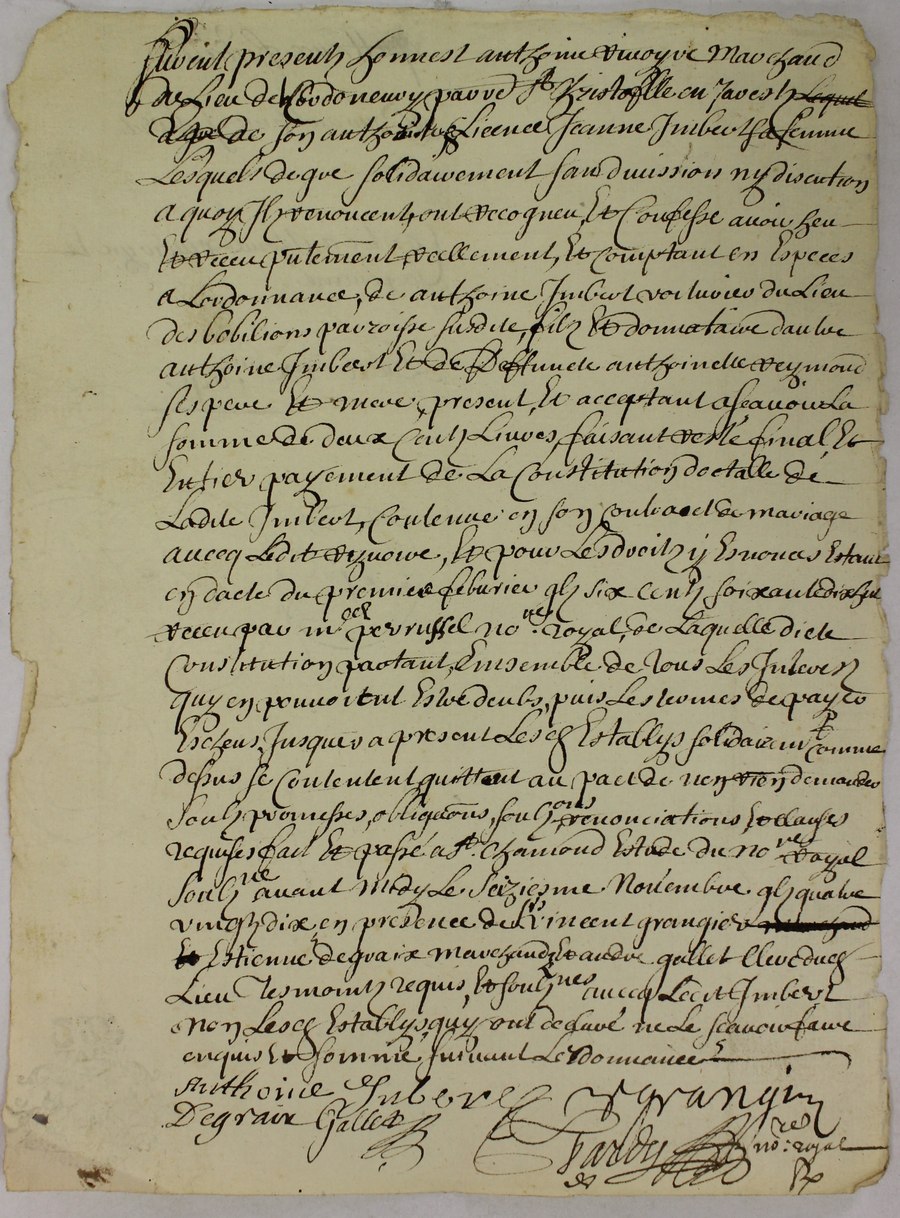 furent presentz honnest anthoine vinoyre Marchand
du Lieu de parroisse St Christofle en Jarestz Lequel
de gre de son anthorité Licence Jeanne Imbert sa femme
Lesquels de gre solidairement sans division ny discution
a quoy Ilz renoncent, ont recogneu Et Confesse avoir heu
Et receu pntement reellement, Et comptant en Especes
a Lordonnance, de anthoine Imbert voiturier du Lieu
des bobilions parroisse susdite, filz Et donnataire dautre
anthoine Imbert Et de deffuncte anthoinette reymond
ses pere Et mere, present, Et acceptant a scavoir La
somme de deux Centz Livres, faisant reste final Et
Entier payement de La Constitution doctalle de
Ladite Imbert, Contenue en son contract de mariage
avecq Ledit, Et pour Les droitz y Esnoncés Estant
en dacte du premier febvrier glz six centz soixante dix huit
receu par me perrussel nore royal, de Laquelle dicte
Constitution partant, Ensemble de tous Les Interestz
quy en pouvoient Estre deubs, puis Les termes de payer
Escheus Jusques a present Lesd Establys solidairemt comme
dessus se Contentent quittent au pact de nen rien demander
soubz promesses, obligaons, soubzons, renonciations Et clauses
requises fait Et passé a St Chamond Estude du nore royal
soubzne avant midy Le seiziesme Novembre glz quatre
vingtz dix en presence de Srs Vincent grangier marchand
Et Estienne degraix marchandz Et andre gallet Clerc dud
Lieu Tesmointz requis, Et soubznes avecq Ledit Imbert
non Lesd Establys quy ont declaré ne Le scavoir faire
enquis Et sommé suivant Lordonnance
Anthoine Inbert V grangier
Degraix Gallet
Tardy nore royal